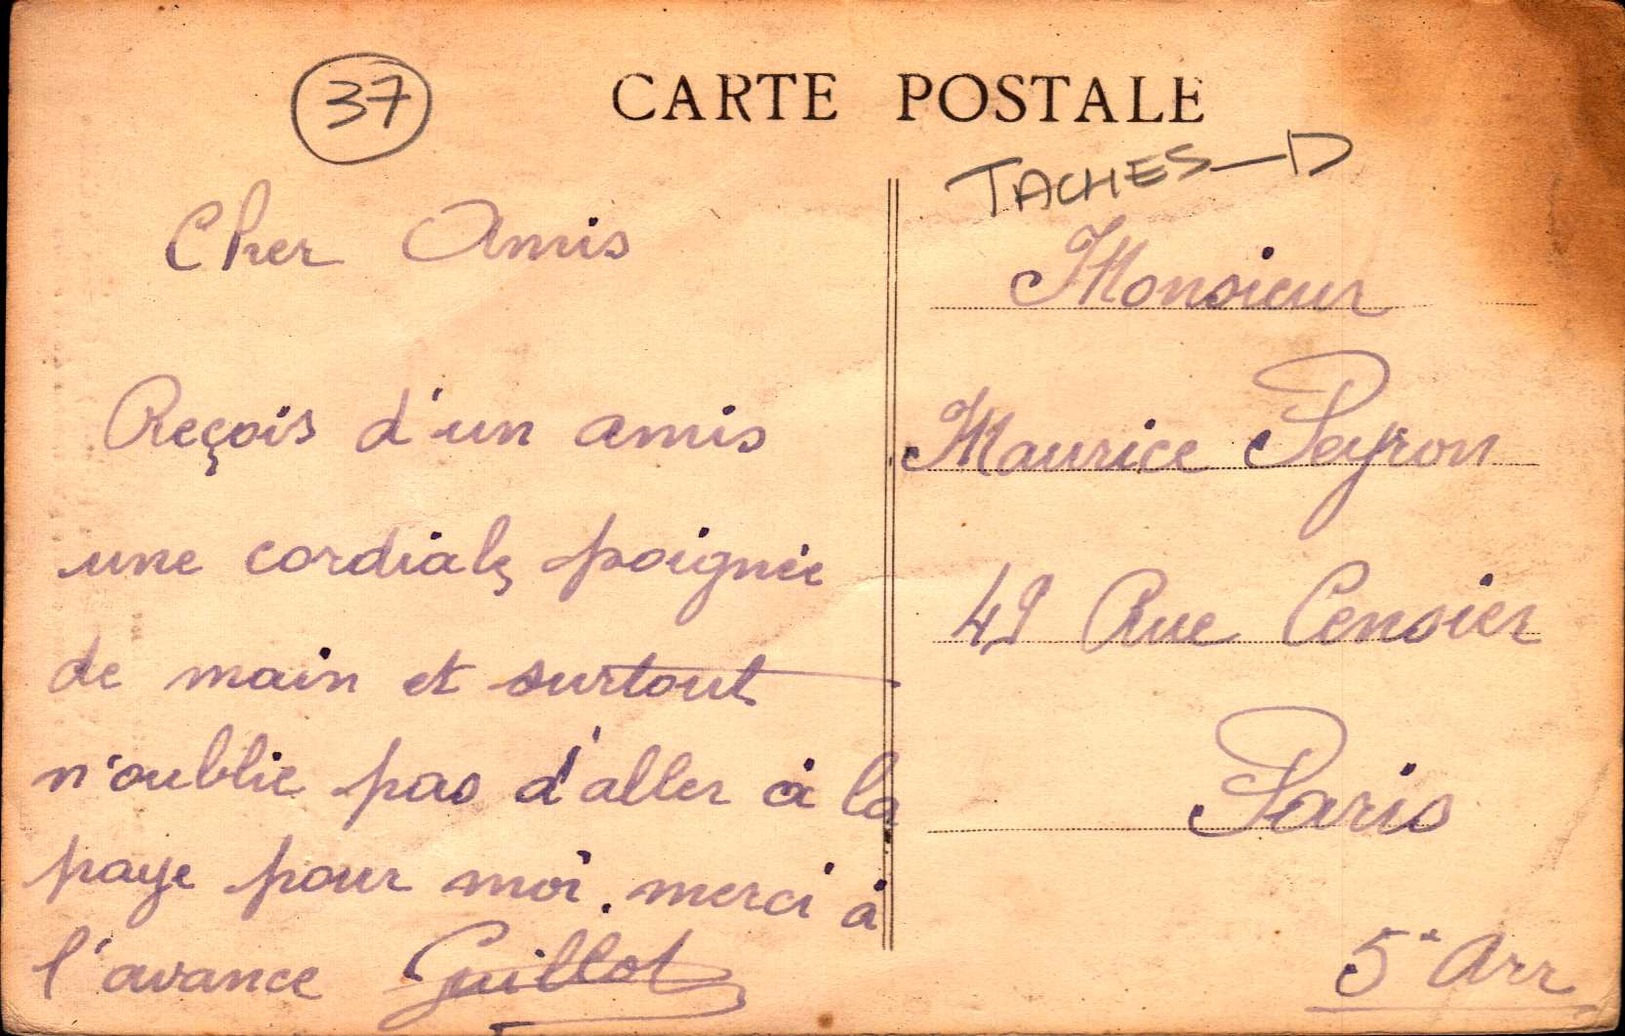 37
CARTE POSTALE
TACHES-D
Cher Amis
Reçois d'un amis
une cordiale poignée
de main et surtout
n'oublie pas d'aller à la
paye pour moi. merci à
l'avance Guillot
Monsieur
Maurice Peyron
49 Rue Censier
Paris
5e Arr